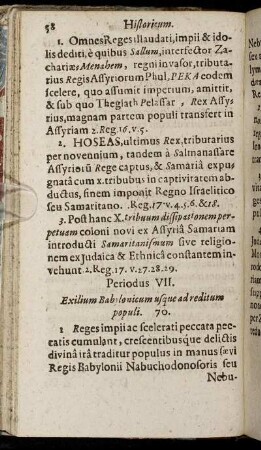 58 Historicum.
1. Omnes Reges illaudati, impii & ido-
lis dediti, è quibus Sallum, interfector Za-
chariæ; Menahem, regni invasor, tributa-
rius Regis Assyriorum Phul, PEKA eodem
scelere, quo assumit imperium, amittit,
& sub quo Theglath Pelassar, Rex Assy
rius, magnam partem populi transfert in
Assyriam 2. Reg. 16. v. 5.
2. HOSEAS, ultimus Rex, tributarius
per novennium, tandem à Salmanassare
Assyriorū Rege captus, & Samariâ expu-
gnatâ cum x. tribubus in captivitatem ab-
ductus, finem imponit Regno Israelitico
seu Samaritano. . Reg. 17. v. 4. 5. 6. & 18.
3. Post hanc X. tribuum dissipationem per-
petuam coloni novi ex Assyriâ Samariam
introducti Samaritanismum sive religio-
nem ex Judaica & Ethnicâ constantem in-
vehunt 2. Reg. 17. v. 27. 28. 29.
Periodus VII.
Exilium Babylonicum usque ad reditum
populi. 70.
1 Reges impii ac scelerati peccata pec-
catis cumulant, crescentibusque delictis
divinâ irâ traditur populus in manus sævi
Regis Babylonii Nabuchodonosoris seu
Nebu-